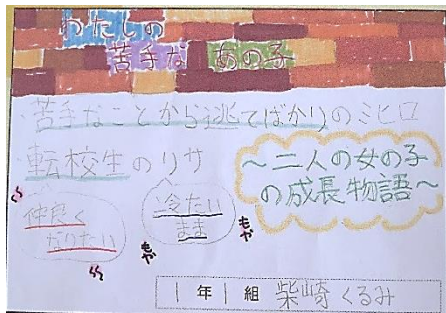 わたしの
苦手な あの子
苦手なことから逃てばかりのミヒロ
転校生のリサ
〜二人の女の子
の成長物語〜
仲良く
なりたい
冷たい
まま
もや
もや
1年1組 柴崎くるみ